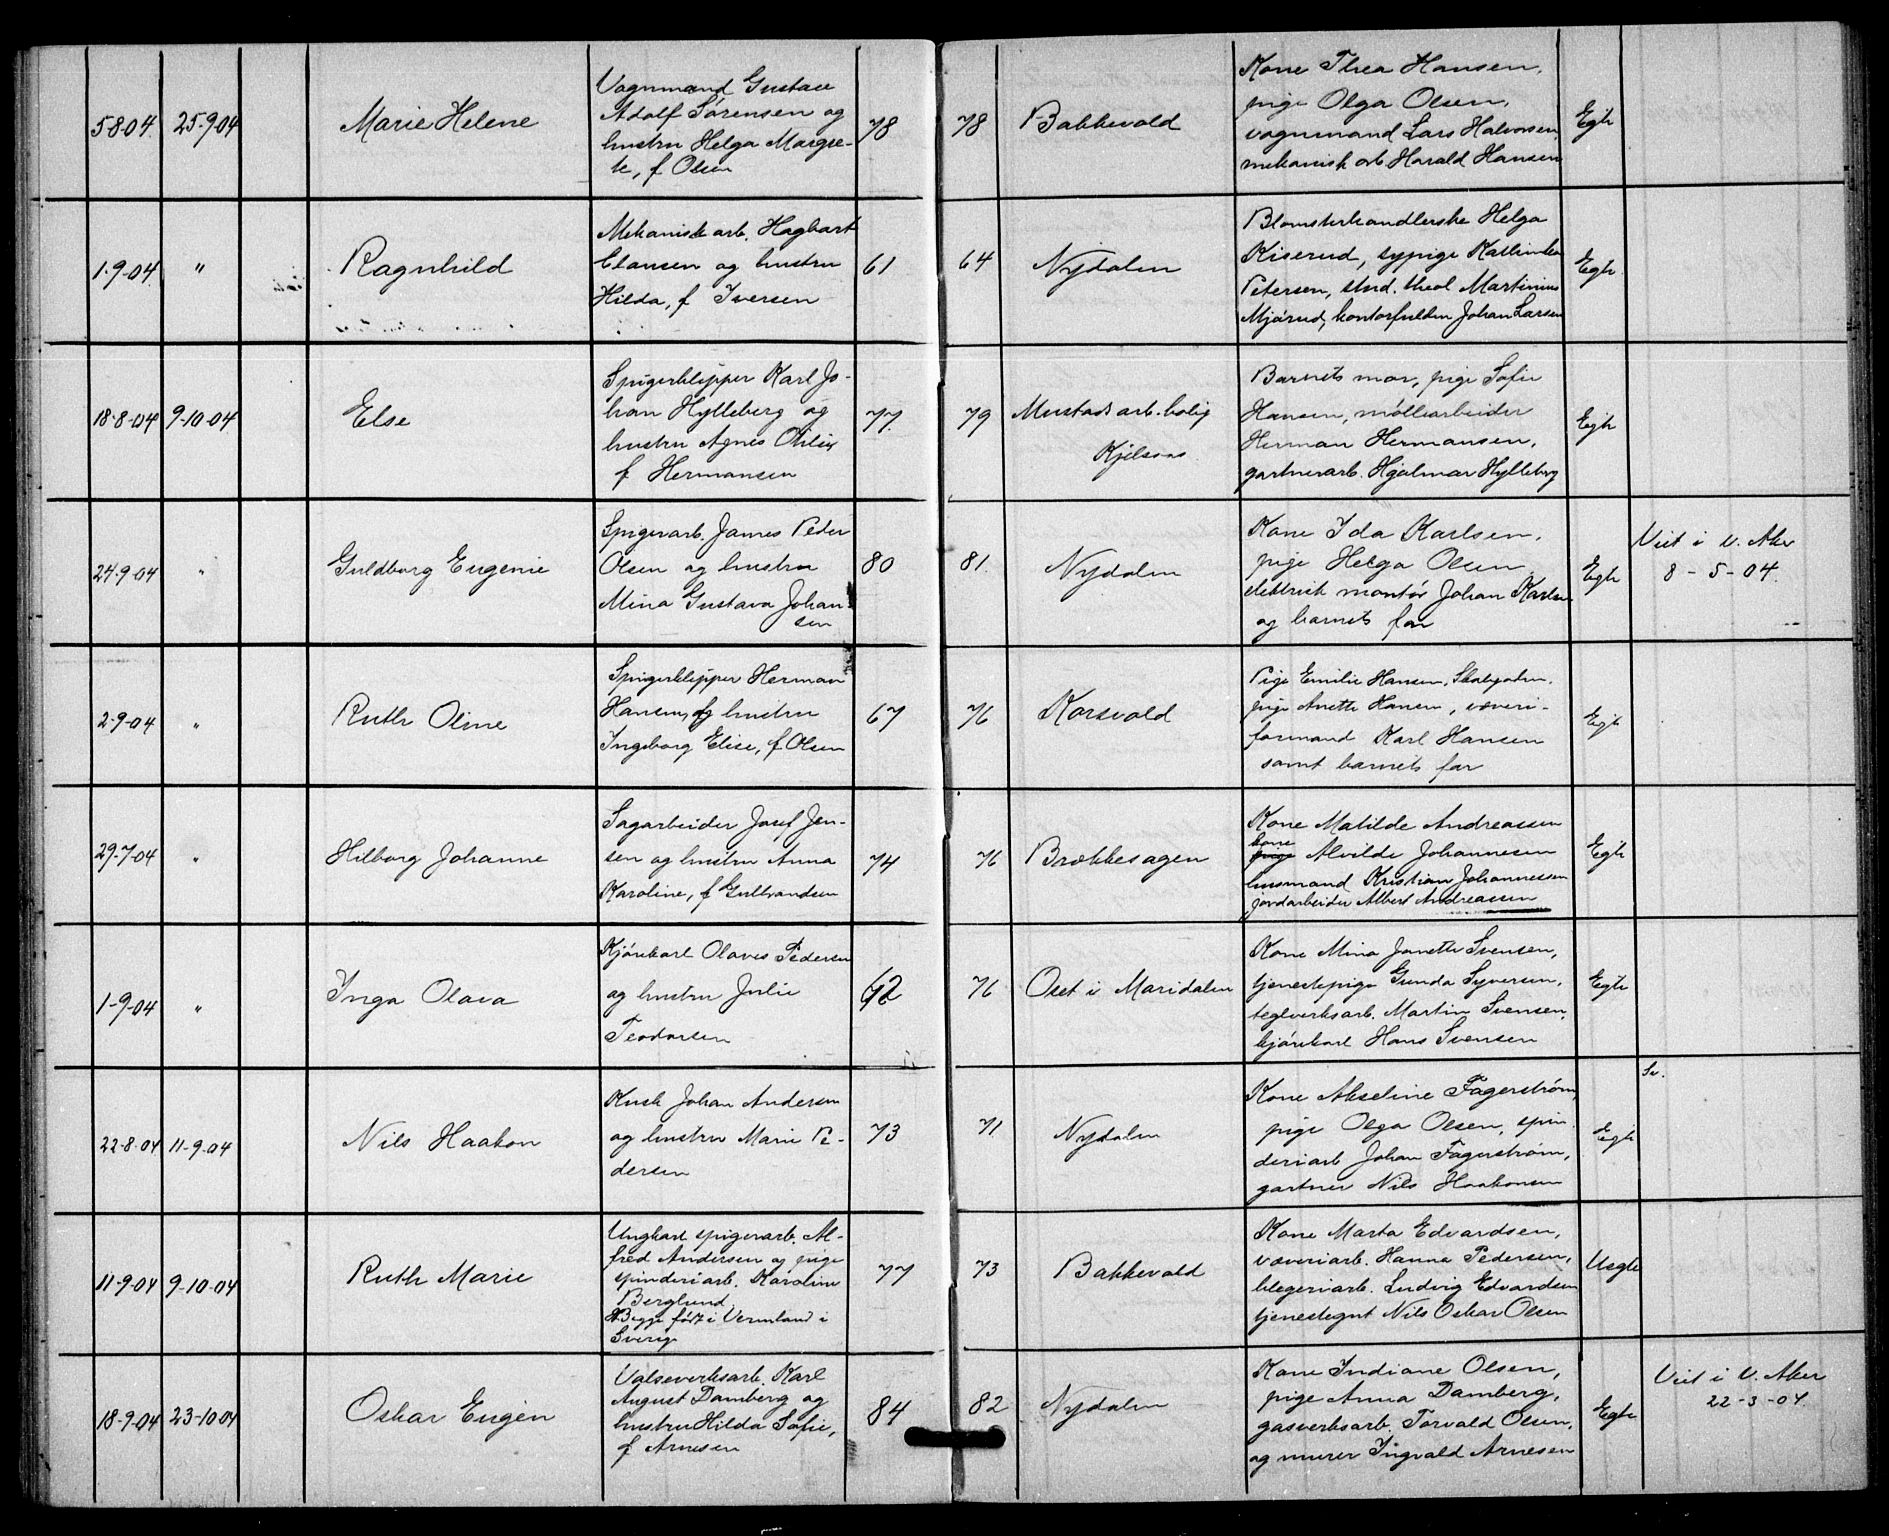 5-8-04. 25-9-04 Marie Helene
Vognmand Gustav
Adolf Sørensen og
hustru Helga Margre-
te, f Olsen
78
78 Bakkevold
Kone Thea Hansen,
pige Olga Olsen,
vognmand Lars Halvorsen,
mekanisk arb Harald Hansen
Egte
1-9-04. " Ragnhild
Mekanisk arb. Hagbart
Clausen og hustru
Hilda, f Iversen
61
64 Nydalen
Blomsterhandlerske Helga
Kiserud, sypige Kathinka
Petersen, stud. theol Martinius
Mjørud, kontorfuldm Johan Larsen
Egte
18-8-04 9-10-04 Else
Spigerklipper Karl Jo-
han Hylleberg og
hustru Agnes Otilie,
f Hermansen
77
79 Mustads arb.bolig
Kjelsaas
Barnets mor, pige Sofie
Hansen, møllearbeider
Herman Hermansen,
gartnerarb. Hjalmar Hylleberg
Egte
24-9-04 " Guldborg Eugenie
Spigerarb. James Peder
Olsen og hustru
Mina Gustava Johan
sen
80
81. Nydalen
Kone Ida Karlsen,
pige Helga Olsen,
elektrisk montør Johan Karlsen
og barnets far
Egte
Viet i V. Aker
8-5-04.
2-9-04 " Ruth Oline
Spigerklipper Herman
Hansen, og hustru
Ingeborg Elise, f. Olsen
67
76 Korsvold
Pige Emilie Hansen,
pige Anette Hansen, væveri-
formand Karl Hansen
samt barnets far
Egte
29-7-04 " Hilborg Johanne
Sagarbeider Josef Jen-
sen og hustru Anna
Karoline, f Gulbrandsen
74
76 Brækkesagen
Kone Matilde Andreassen
kone
pige Alvilde Johannesen
husmand Kristian Johannessen
jordarbeider Albert Andreassen
Egte
1-9-04 " Inga Olava
Kjørekarl Olaves Pedersen
og hustru Julie
Teodorsen
62
76 Oset i Maridalen
Kone Mina Janette Svensen,
tjenestepige Gunda Syversen,
teglverksarb. Martin Svensen,
kjørekarl Hans Svensen
Egte
22-8-04 11-9-04 Nils Haakon
Kusk Johan Andersen
og hustru Marie Pe-
dersen
73
71 Nydalen
Kone Akseline Fagerstrøm,
pige Olga Olsen, spin
deriarb Johan Fagerstrøm,
gartner Nils Haakonsen
Egte
Sv.
11-9-04 9-10-04 Ruth Marie
Ungkarl spigerarb. Al-
fred Andersen og pige
spinderiarb. Karoline
Berglund.
Begge født i Vermland i
Sverige
77
73 Bakkevold
Kone Marta Edvardsen,
væveriarb. Hanna Pedersen,
blegeriarb. Ludvig Edvardsen
tjenestegut Nils Oskar Olsen
Uegte
18-9-04 23-10-04 Oskar Eugen
Valseverksarb. Karl
August Damberg og
hustru Hilda Sofie,
f Arnesen
84
82 Nydalen
Kone Indiane Olsen,
pige Anna Damberg,
gasverksarb. Torvald Olsen,
og murer Ingvald Arnesen
Egte
Viet i V. Aker
22-3-04.